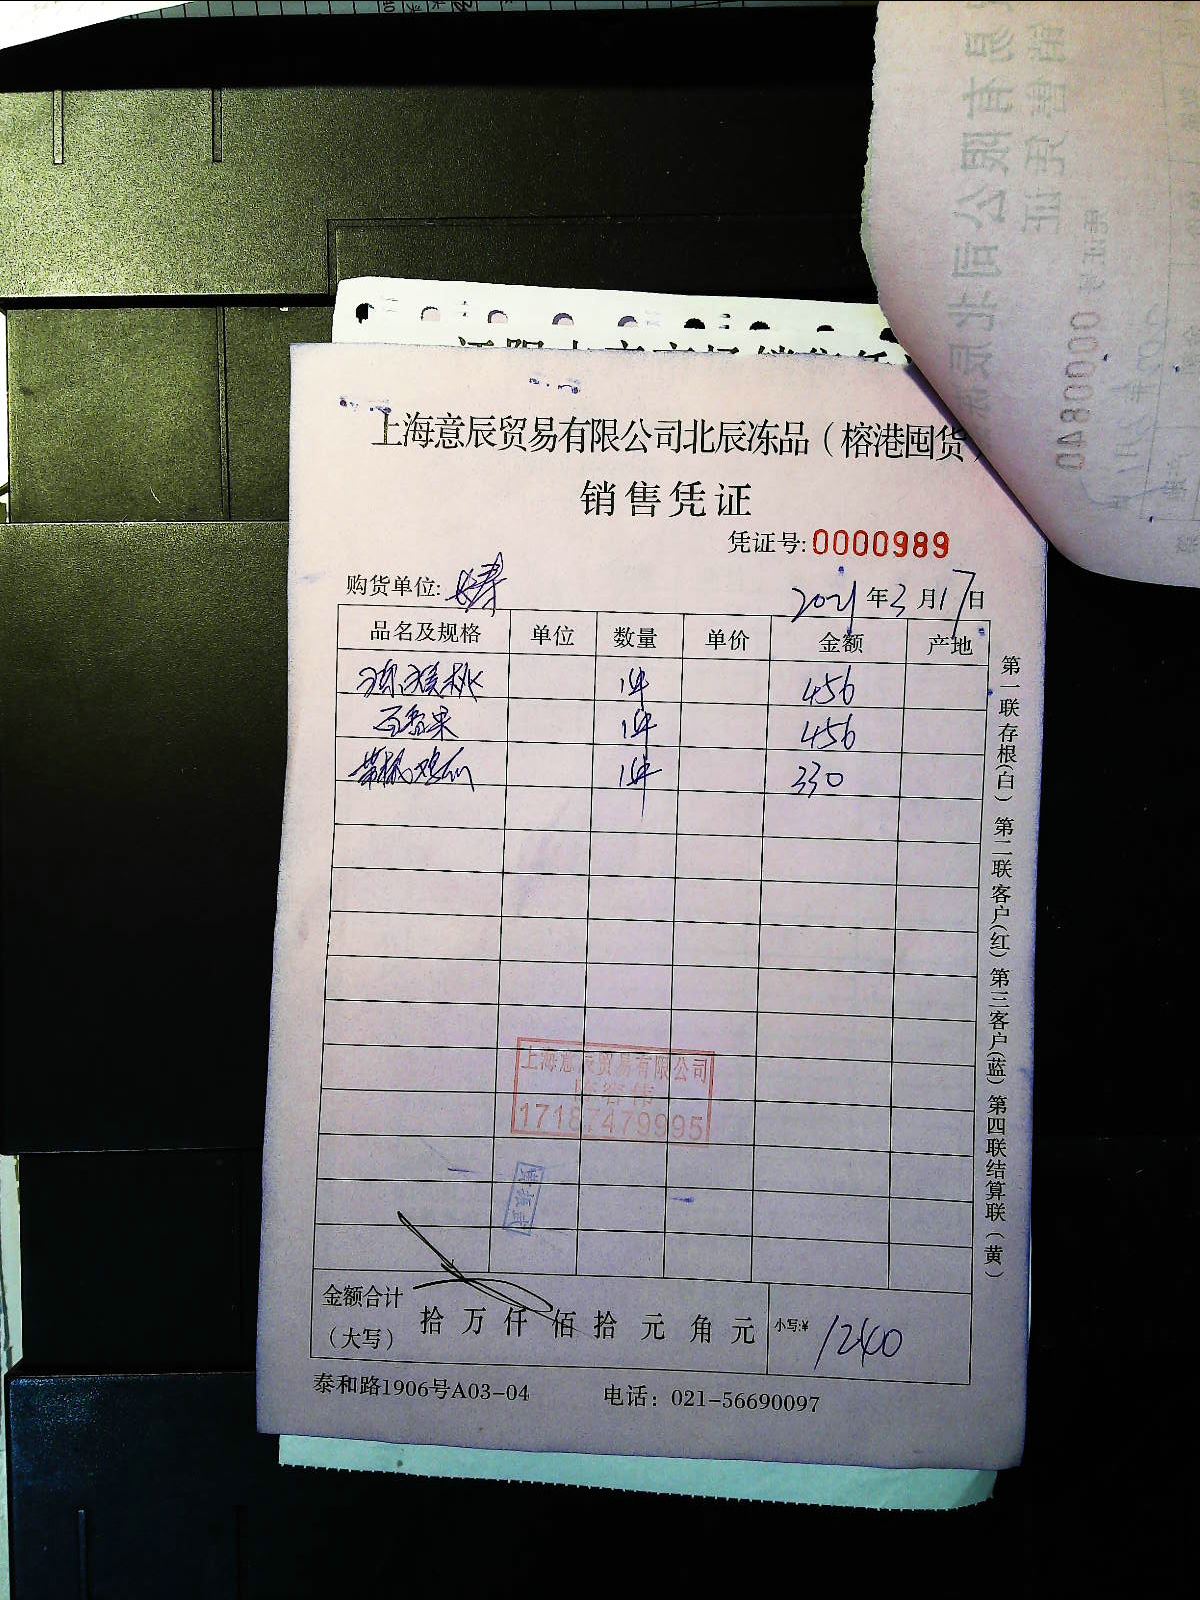 上海意辰贸易有限公司北辰冻品（榕港囤货
销售凭证
凭证号: 0000989
购货单位:
2021年3月17日
品名及规格 单位 数量 单价 金额 产地
猕猴桃 1件 456
百香果 1件 456
1件 330
上海意辰贸易有限公司
17187479995
金额合计
（大写） 拾 万 仟 佰 拾 元 角 元 小写:¥ 1240
泰和路1906号A03-04 电话：021-56690097
第一联存根(白) 第二联客户(红) 第三客户(蓝) 第四联结算联(黄)
0000840